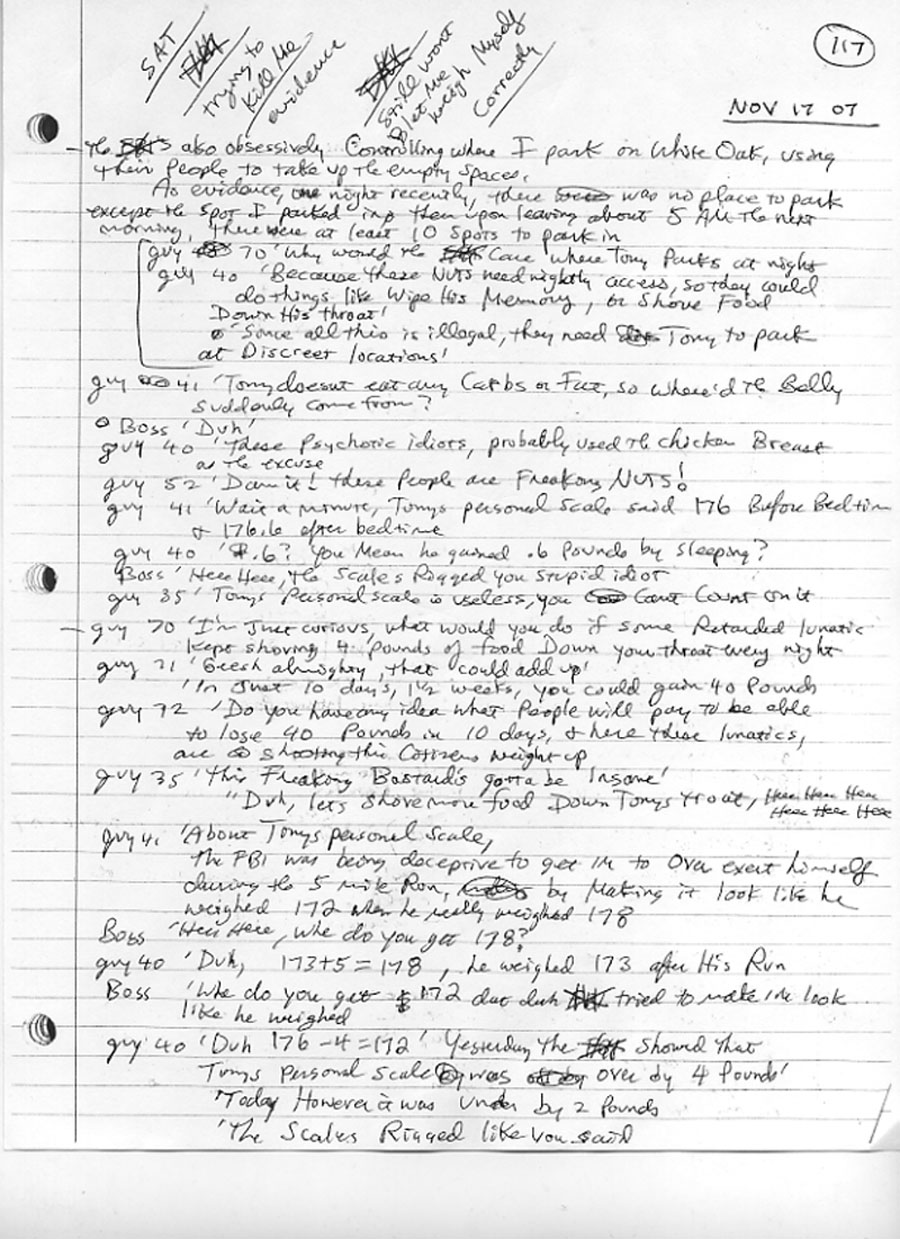 117
SAT
trying to
Kill Me
evidence
Still wont
let me
weigh Myself
Correctly
NOV 17 07
- the also obsessively Controlling where I park on White Oak, using
their People to take up the empty spaces.
As evidence, one night recently, there was no place to park
except the spot I parked in, then upon leaving about 5 AM the next
morning, there were at least 10 spots to park in
guy 70 'Why would the Care where Tony Parks at night
guy 40 'Because these NUTS need nightly access, so they could
do things like Wipe His Memory, or Shove Food
Down His throat'
'Since all this is illegal, they need Tony to park
at Discreet locations'
guy 41 'Tony doesnt eat any Carbs or Fat, so where'd the Belly
suddenly come from?
Boss 'Duh'
guy 40 'These Psychotic idiots, probably used the chicken Breast
as the excuse
guy 52 'Damit! these People are Freaking NUTS!
guy 41 'Wait a minute, Tonys personal Scale said 176 Before Bedtime
& 176.6 after bedtime
guy 40 '.6? You Mean he gained .6 Pounds by sleeping?
Boss 'Here Here, the Scales Rigged you stupid idiot
guy 35 'Tonys Personal scale is useless, you Cant Count on it
- guy 70 'I'm Just curious, what would you do if some Retarded lunatic
kept shoving 4 pounds of food Down your throat every night
guy 71 'Geesh almighty, that could add up'
'In Just 10 days, 1½ weeks, you could gain 40 Pounds
guy 72 'Do you have any idea what People will pay to be able
to lose 40 Pounds in 10 days, & here these lunatics,
are shooting this Citizens weight up
guy 35 'this Freaking Bastards gotta be Insane'
"Duh, lets shove more food Down Tonys troat, Here Here Here
Here Here Here
guy 41 'About Tonys personal Scale,
the FBI was being deceptive to get IM to Over exert himself
during the 5 mile Run, by Making it look like he
weighed 172 when he really weighed 178
Boss 'Here Here, Whe do you get 178?
guy 40 'Duh, 173+5=178, he weighed 173 after His Run
Boss 'Whe do you get 172 dat duh tried to make IM look
like he weighed
guy 40 'Duh 176-4=172' Yesterday the Showed that
Tonys Personal Scale was over by 4 Pounds'
'Today However it was under by 2 Pounds
'The Scales Rigged like you said